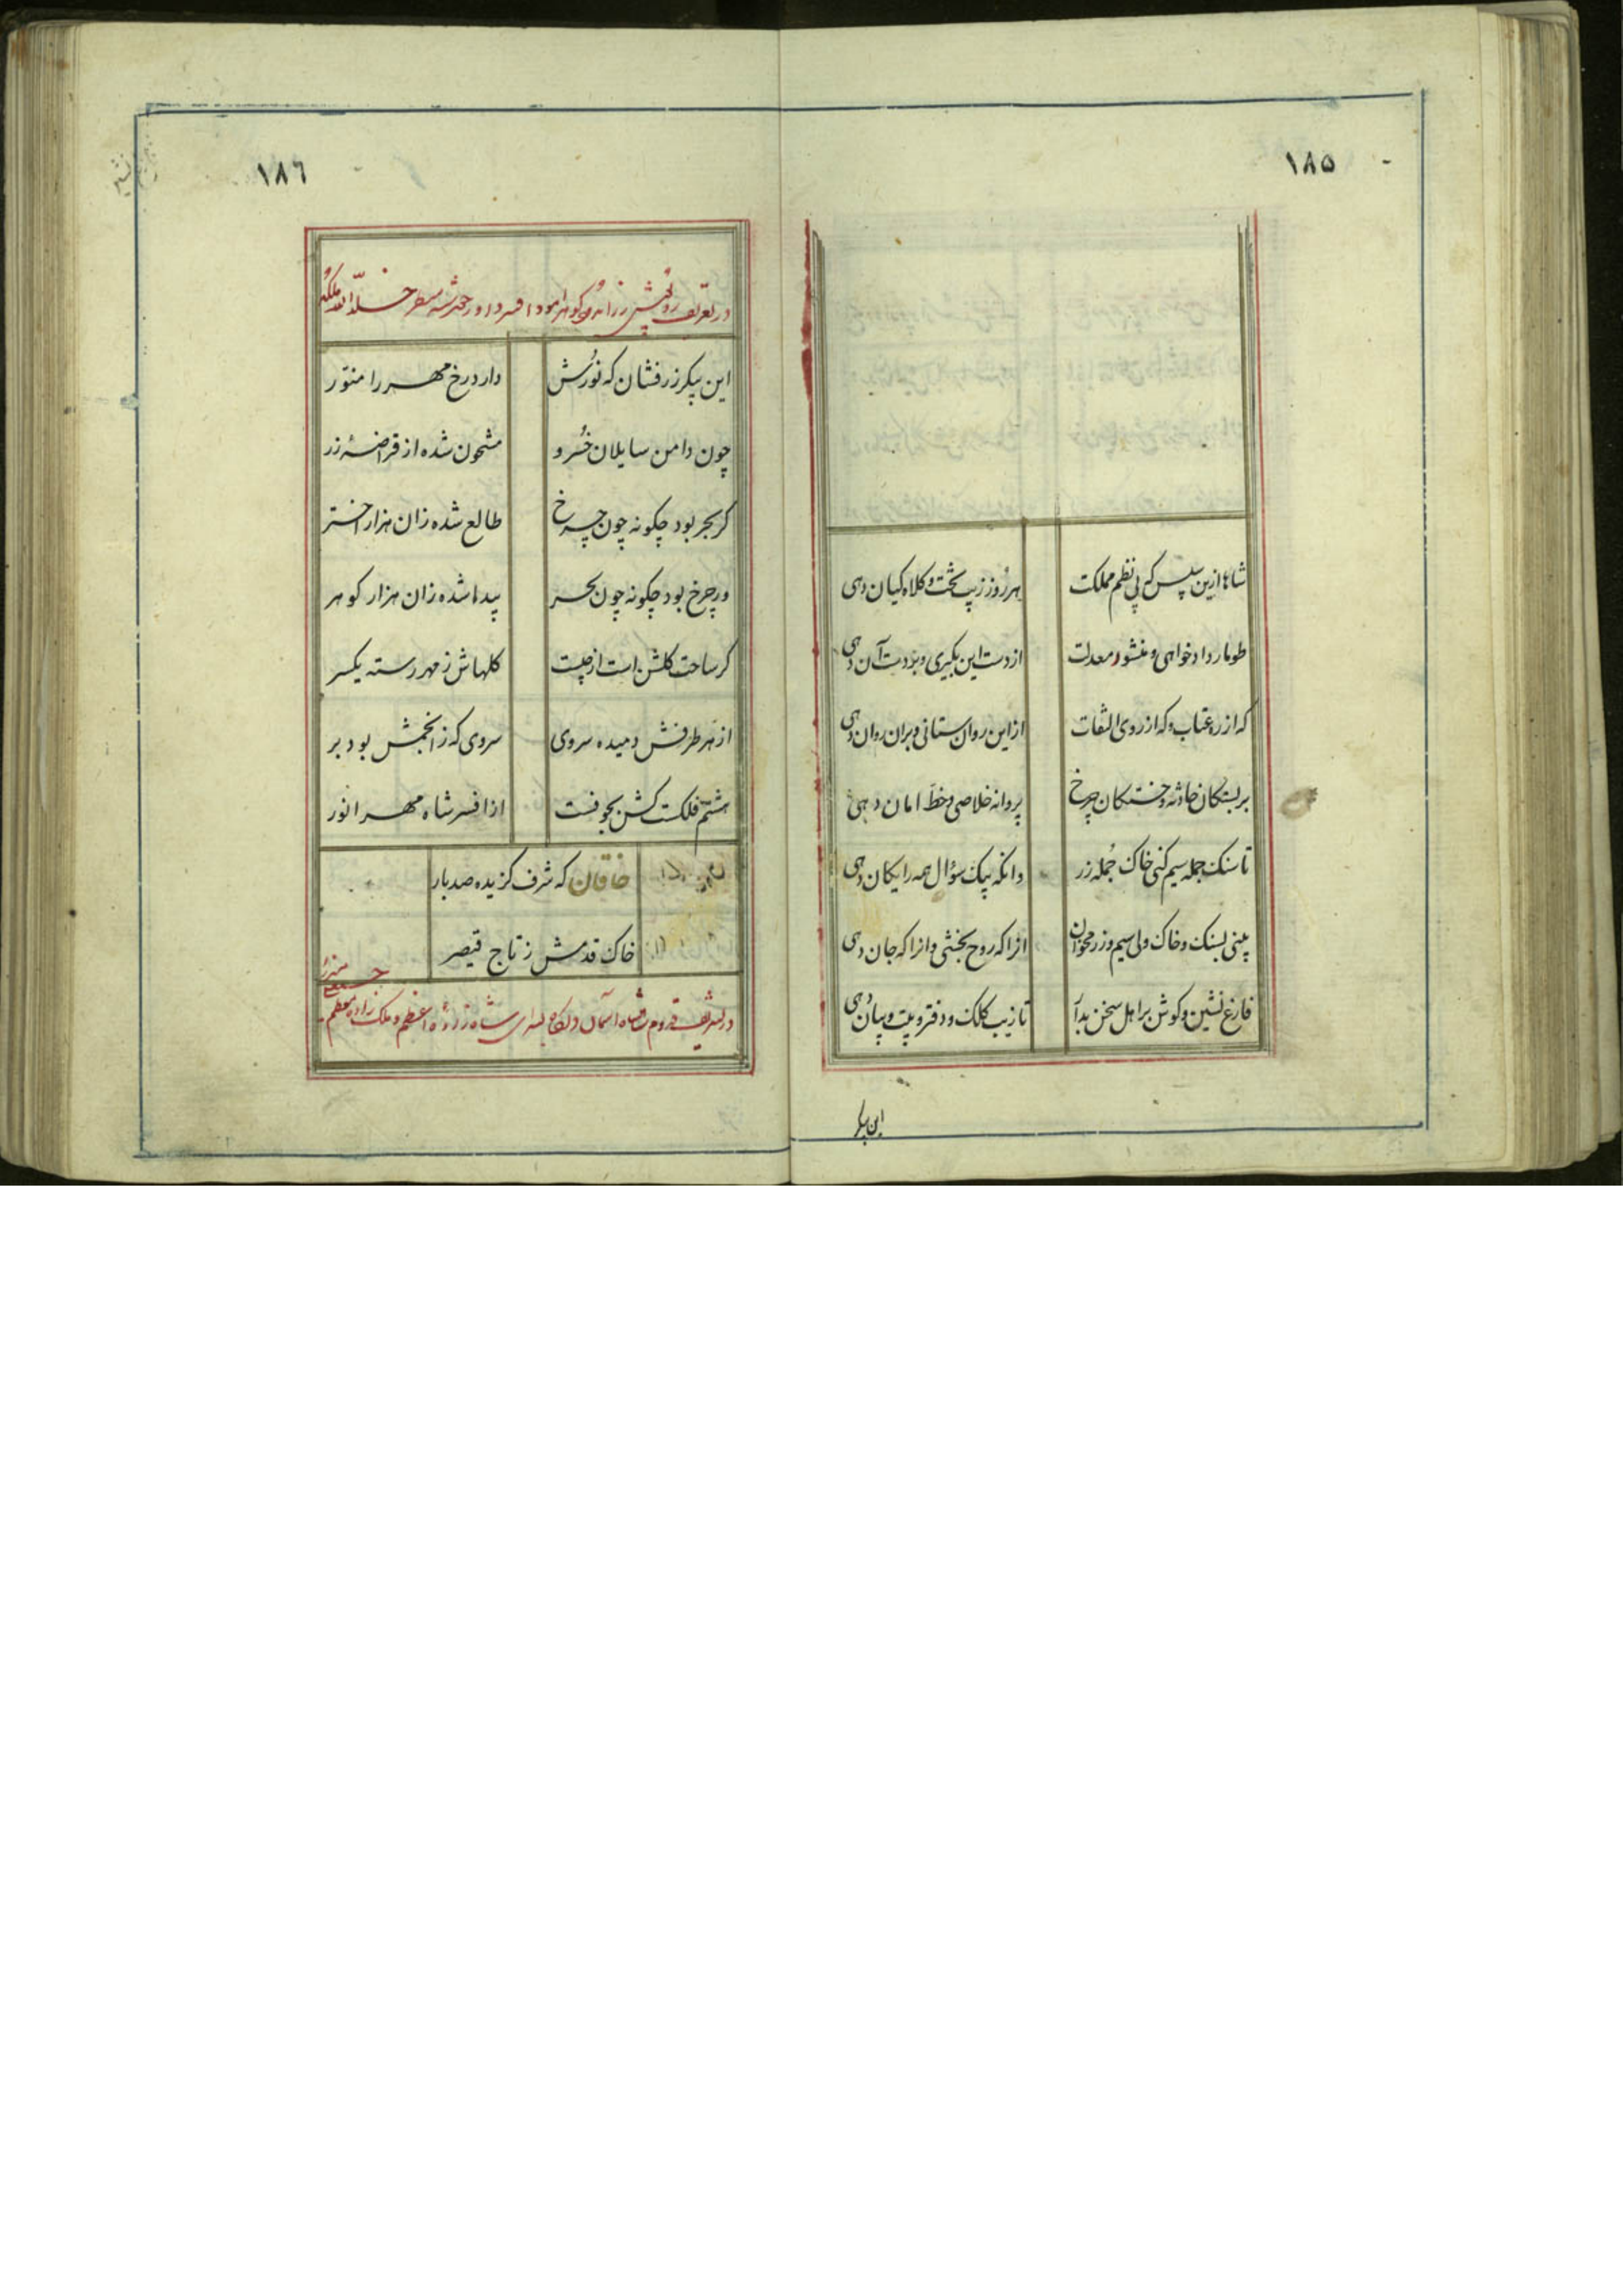 ١٨٥
شاها ازین سپس که پی نظم مملکت هر روز زیب تخت و کلاه کیان دهی
طومار دادخواهی و منشور معدلت از دست این بگیری و بر دست آن دهی
که از ره عتاب و که از روی التفات از این روان ستانی و بر آن روان دهی
بر بستکان حادثه و خستکان چرخ پروانه خلاصی و خط امان دهی
تا سنک جمله سیم کنی خاک جمله زر وانکه بیک سؤال همه رایکان دهی
بینی بسنک و خاک ولی سیم و زر مخوان آنرا که روح بخشی و آنرا که جان دهی
فارغ نشین و کوش بر اهل سخن بدار تا زیب کلک و دفتر و بیت و بیان دهی
این پیکر
١٨٦
در تعریف زرافشان و کوهر آمود افسر داور خلّد الله ملکه
این پیکر زرفشان که نورش دارد رخ مهر را منوّر
چون دامن سایلان خسرو مشحون شده از قراضهٔ زر
کر بحر بود چکونه چون چرخ طالع شده زان هزار اختر
ور چرخ بود چکونه چون بحر پیدا شده زان هزار کوهر
کر ساحت کلشن است از چیست کلهاش ز مهر رسته یکسر
از هر طرفش دمیده سروی سروی که ز انجمش بود بر
هشتم فلکست کش بجوفست از افسر شاه مهر انور
خاقان که شرف کزیده صد بار
خاک قدمش ز تاج قیصر
در تشریف قدوم شاه آسمان بسرای شاهزادهٔ اعظم و ملک زاده معظم